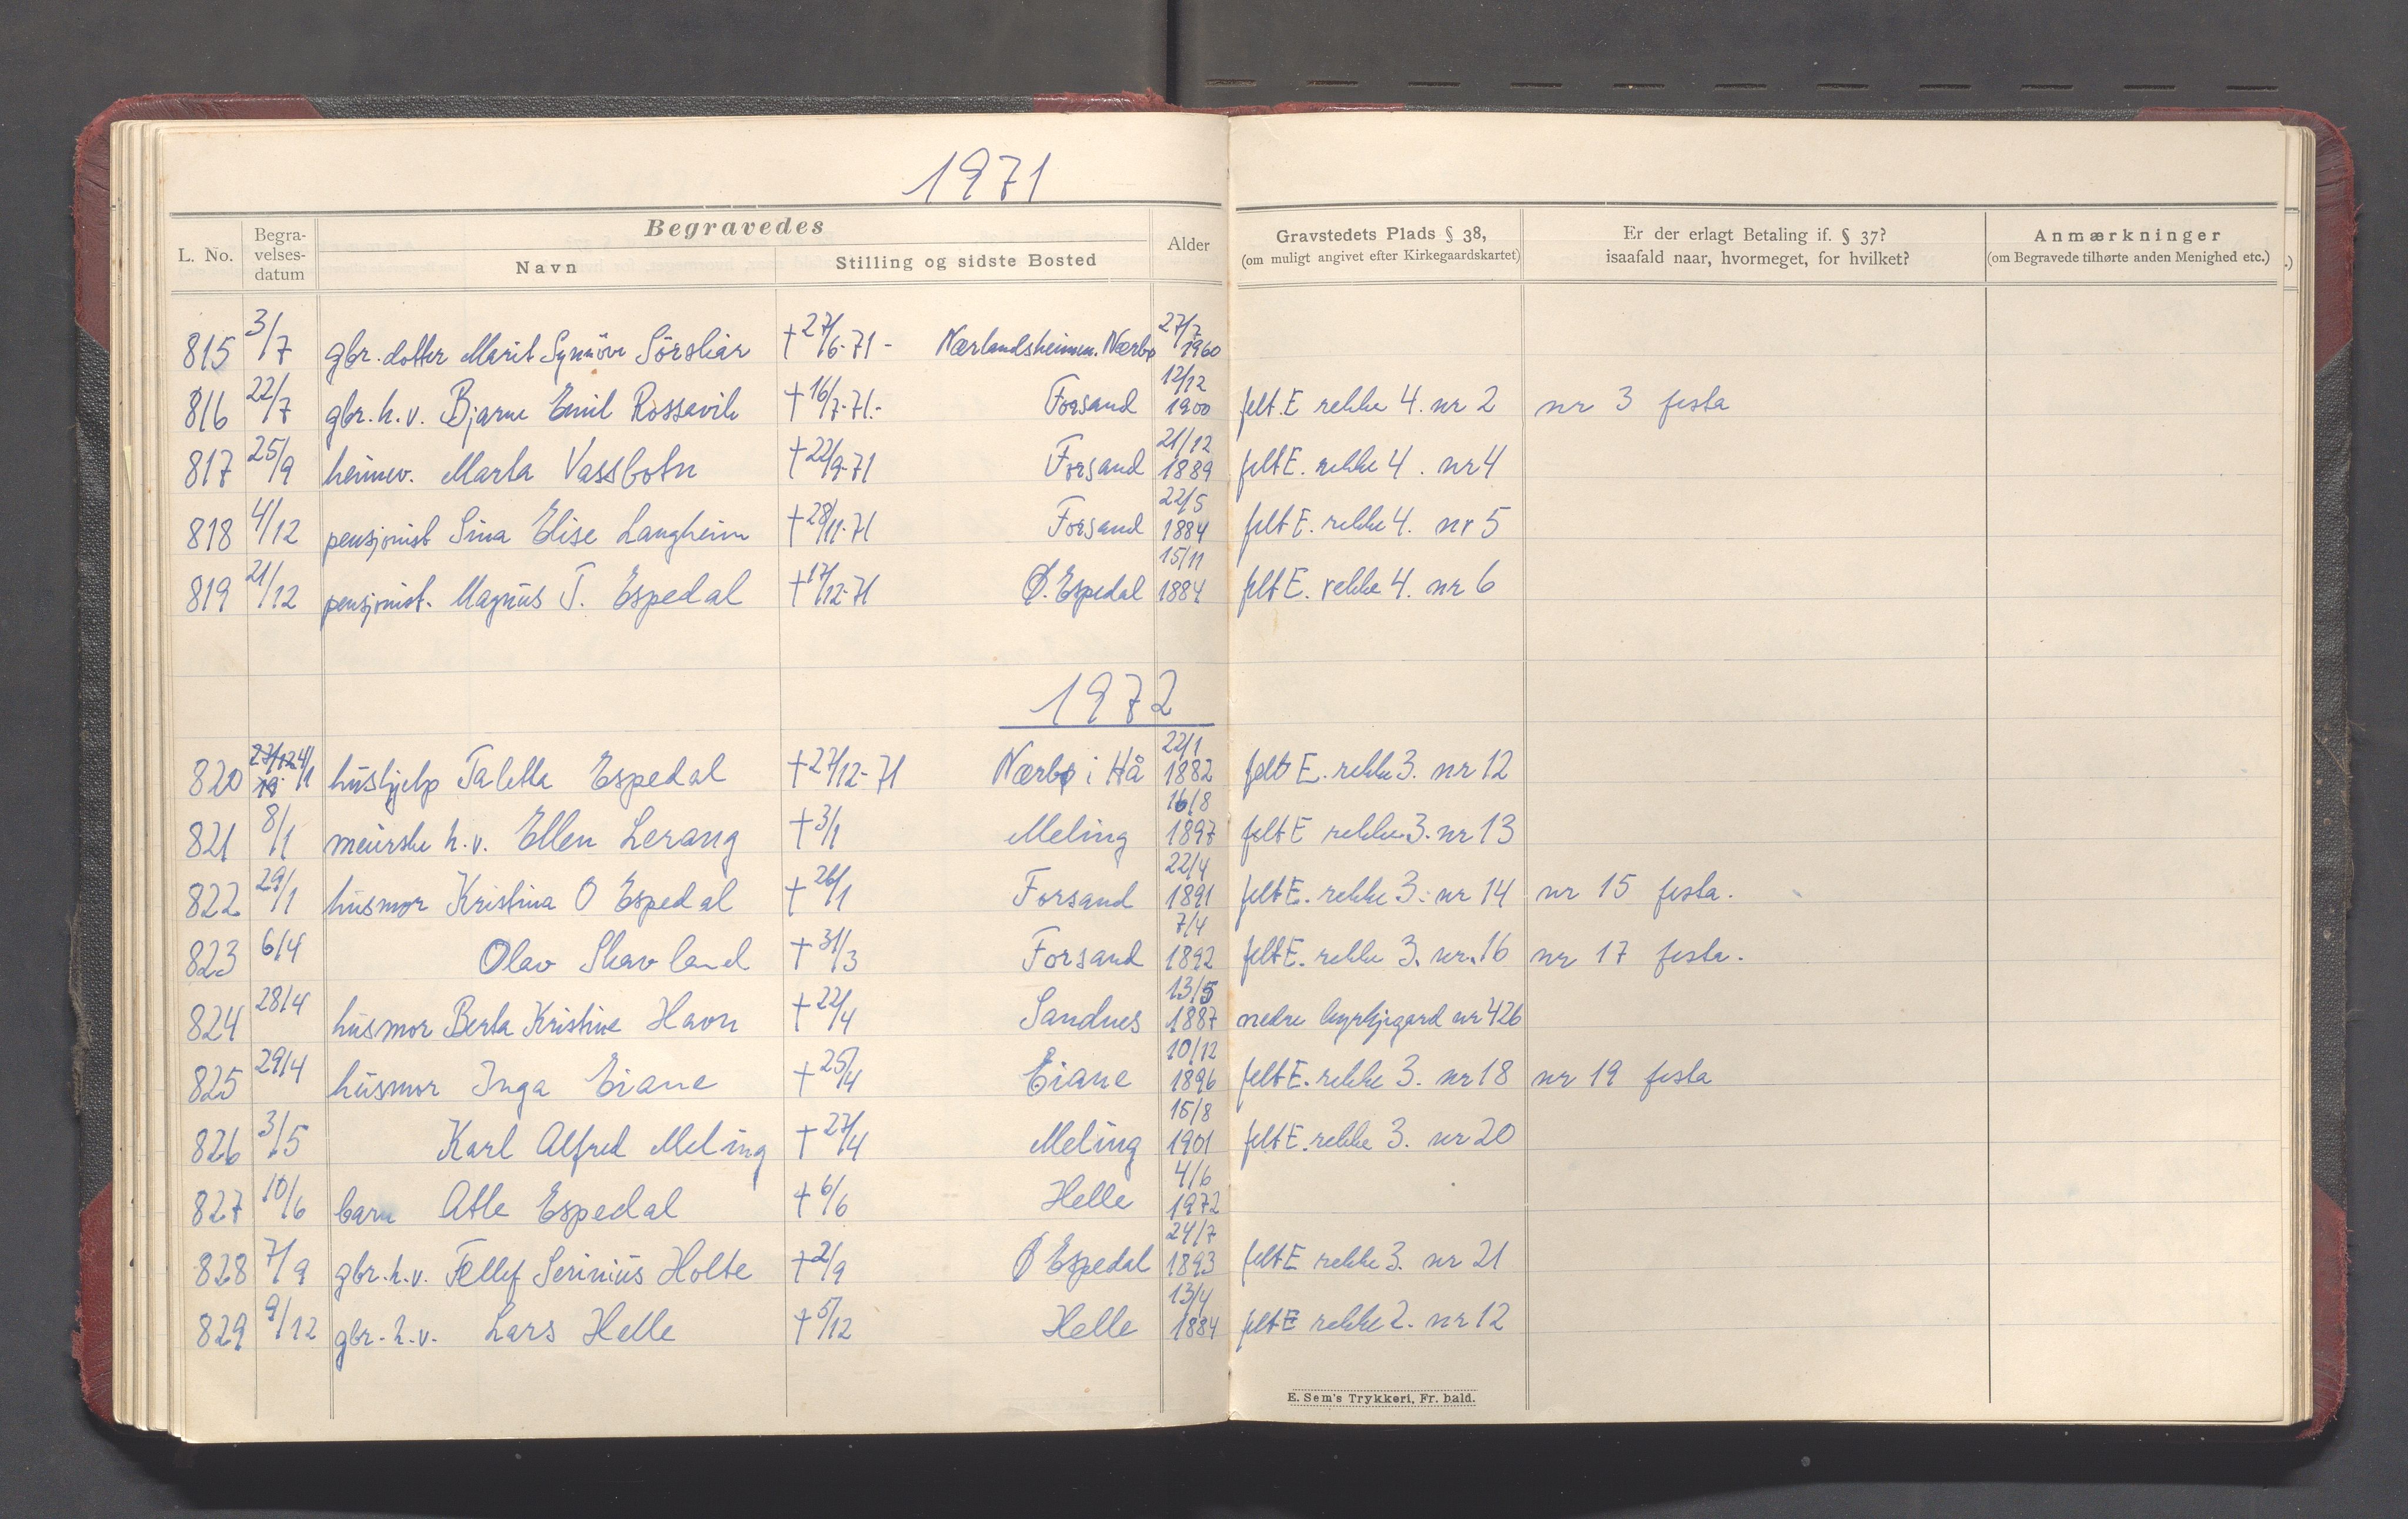 1971
L. No. Begravelsesdatum Begravedes Navn Stilling og sidste Bosted Alder Gravstedets Plads § 38, (om muligt angivet efter Kirkegaardskartet) Er der erlagt Betaling if. § 37? isaafald naar, hvormeget, for hvilket? Anmærkninger (om Begravede tilhørte anden Menighed etc.)
815 3/7 gbr. dotter Marit Synnöve Sörsliar †27/6-71 - Nærlandsheimen. Nærbø 27/7 1960
816 22/7 gbr. h.v. Bjarne Emil Rossavik †16/7-71.- Forsand 12/12 1900 felt.E rekke 4. nr 2 nr 3 festa
817 25/9 heimev. Marta Vassbotn †22/9-71 Forsand 21/12 1889 felt E. rekke 4. nr 4
818 4/12 pensjonist Sina Elise Langheim †28/11-71 Forsand 22/5 1884 felt E. rekke 4. nr 5
819 21/12 pensjonist. Magnus T. Espedal †17/12-71 Ø. Espedal 15/11 1884 felt E. rekke 4. nr 6
1972
820 4/1 hushjelp Taletta Espedal †27/12-71 Nærbø i Hå 22/1 1882 felt E. rekke 3. nr 12
821 8/1 meierske h.v. Ellen Lerang †3/1 Meling 16/8 1897 felt E rekke 3. nr 13
822 29/1 husmor Kristina O Espedal †26/1 Forsand 22/4 1891 felt E. rekke 3. nr 14 nr 15 festa.
823 6/4 Olav Skavland †31/3 Forsand 7/4 1892 felt E. rekke 3. nr. 16 nr 17 festa.
824 28/4 husmor Berta Kristine Havn †22/4 Sandnes 13/5 1887 nedre kyrkjegard nr 426
825 29/4 husmor Inga Eiane †25/4 Eiane 10/12 1896 felt E. rekke 3. nr 18 nr 19 festa
826 3/5 Karl Alfred Meling †27/4 Meling 15/8 1901 felt E. rekke 3. nr 20
827 10/6 barn Atle Espedal †6/6 Helle 4/6 1972
828 7/9 gbr. h.v. Tellef Serinius Holte †2/9 Ø Espedal 24/7 1893 felt E rekke 3. nr 21
829 9/12 gbr. h.v. Lars Helle †5/12 Helle 13/4 1884 felt E rekke 2. nr 12
E. Sem's Trykkeri, Fr. hald.